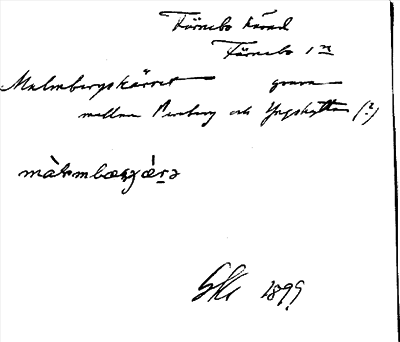 Färnebo härad
Färnebo sn
Malmbergskärret gruva
mellan Persberg och Yngshyttan (?)
màlmbærjçǽrə
1899